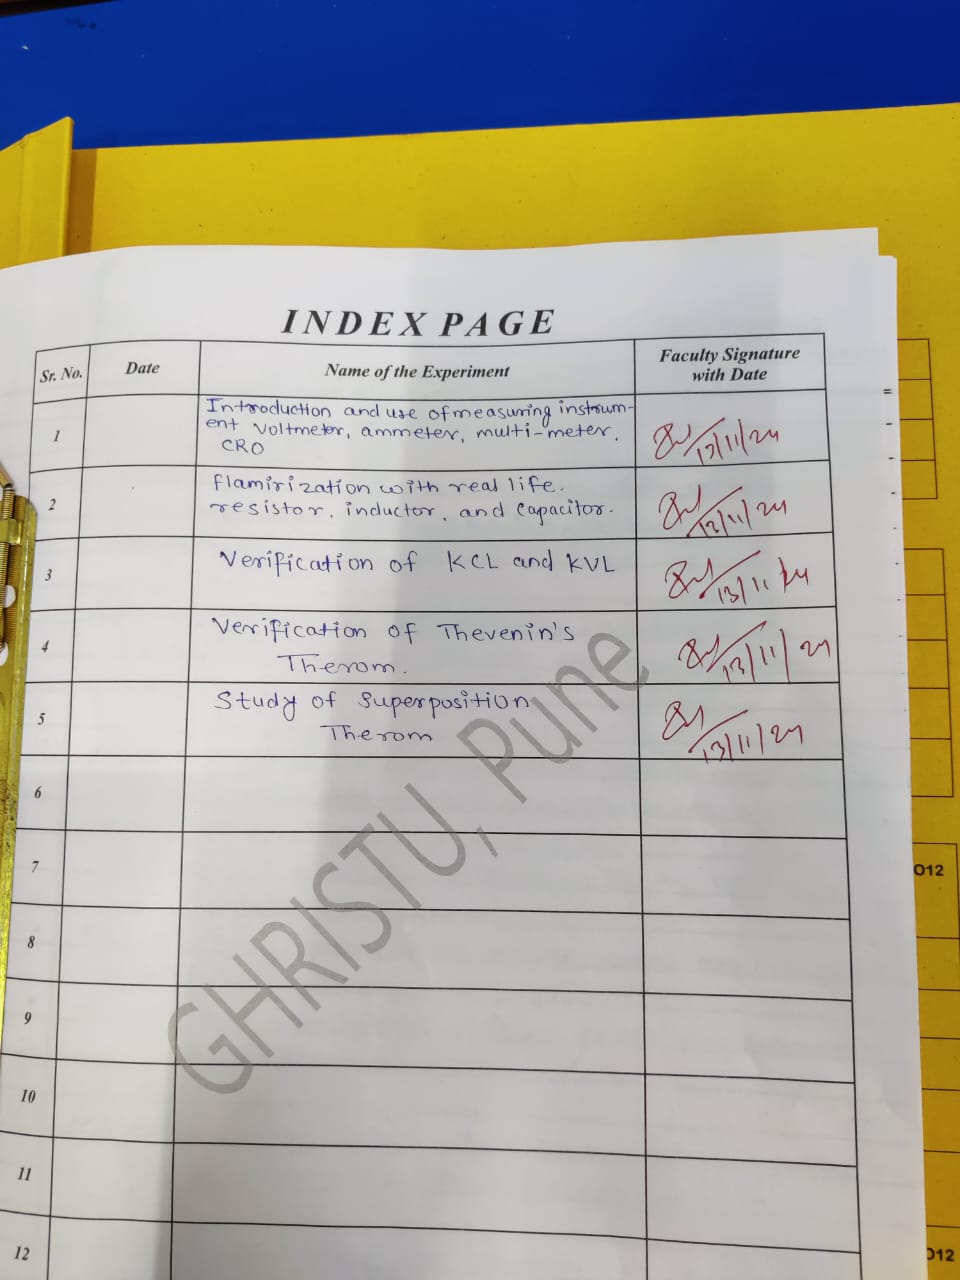 INDEX PAGE
Sr. No.
Date
Name of the Experiment
Faculty Signature
with Date
1
Introduction and use of measuring instrum-
ent Voltmeter, ammeter, multi-meter.
CRO
13/11/24
2
flamirization with real life.
resistor, inductor, and Capacitor.
13/11/24
3
Verification of KCL and KVL
13/11/24
4
Verification of Thevenin's
Therom.
13/11/24
5
Study of Superposition
Therom
13/11/24
6
7
8
9
10
11
12
GHRISTU, Pune
O12
O12